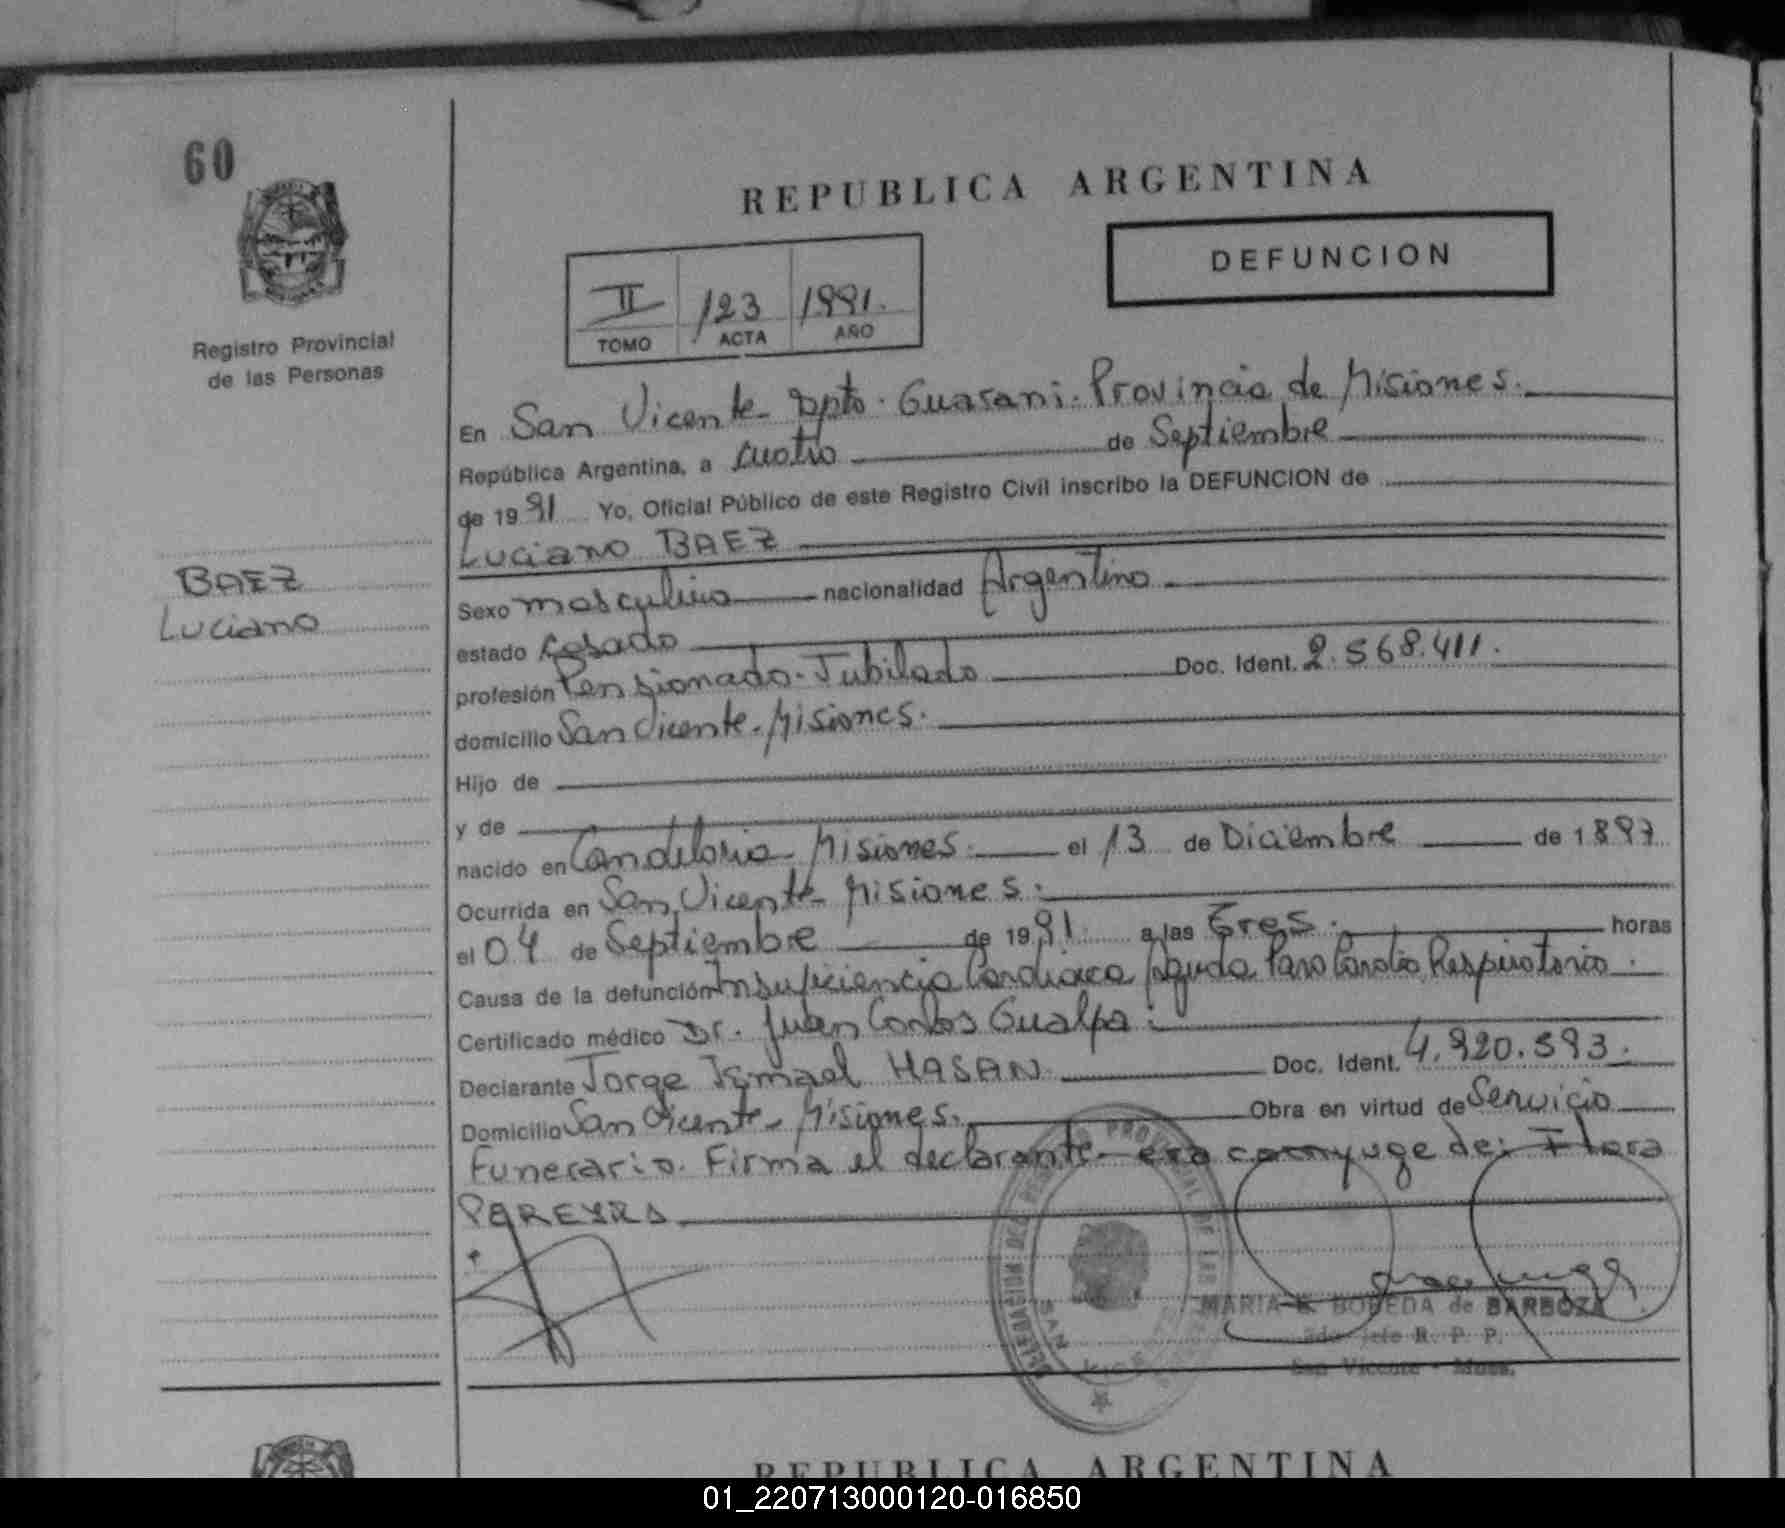 60
REPUBLICA ARGENTINA
DEFUNCION
II 123 1991.
TOMO ACTA AÑO
Registro Provincial
de las Personas
En San Vicente - Dpto. Guarani. Provincia de Misiones.
República Argentina, a cuatro de Septiembre
de 19 91 Yo, Oficial Público de este Registro Civil inscribo la DEFUNCION de
Luciano BAEZ
BAEZ
Luciano
Sexo masculino nacionalidad Argentino
estado Casado
profesión Pensionado-Jubilado Doc. Ident. 2.568.411.
domicilio San Vicente - Misiones.
Hijo de
y de
nacido en Candelaria - Misiones. el 13 de Diciembre de 1897
Ocurrida en San Vicente - Misiones.
el 04 de Septiembre de 1991. a las tres. horas
Causa de la defunción Insuficiencia Cardiaca Aguda Paro Cardio Respiratorio.
Certificado médico Dr. Juan Carlos Gualpa.
Declarante Jorge Ismael HASAN Doc. Ident. 4.920.593.
Domicilio San Vicente - Misiones. Obra en virtud de Servicio
Funerario. Firma el declarante - era conyuge de: Flora
PEREYRA
MARIA E. BOBEDA de BARBOZA
R. P. P.
San Vicente - Mnes.
REPUBLICA ARGENTINA
01_220713000120-016850